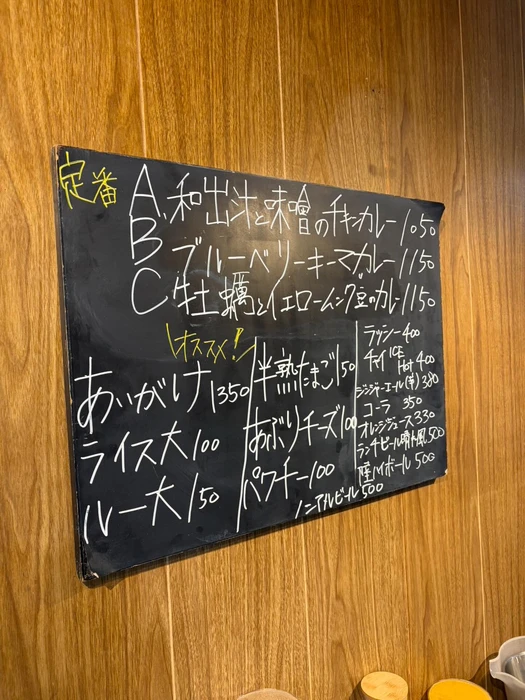 定番
A.和出汁と味噌のチキンカレー 1050
B ブルーベリーキーマカレー 1150
C 牡蠣とイエロームング豆のカレー 1150
オススメ!
あいがけ 1350
ライス大 100
ルー大 150
半熟たまご 150
あぶりチーズ 100
パクチー 100
ノンアルビール 500
ラッシー 400
チャイ ICE Hot 400
ジンジャーエール(辛) 380
コーラ 350
オレンジジュース 330
ランチビール 晴れ風 500
ハイボール 500